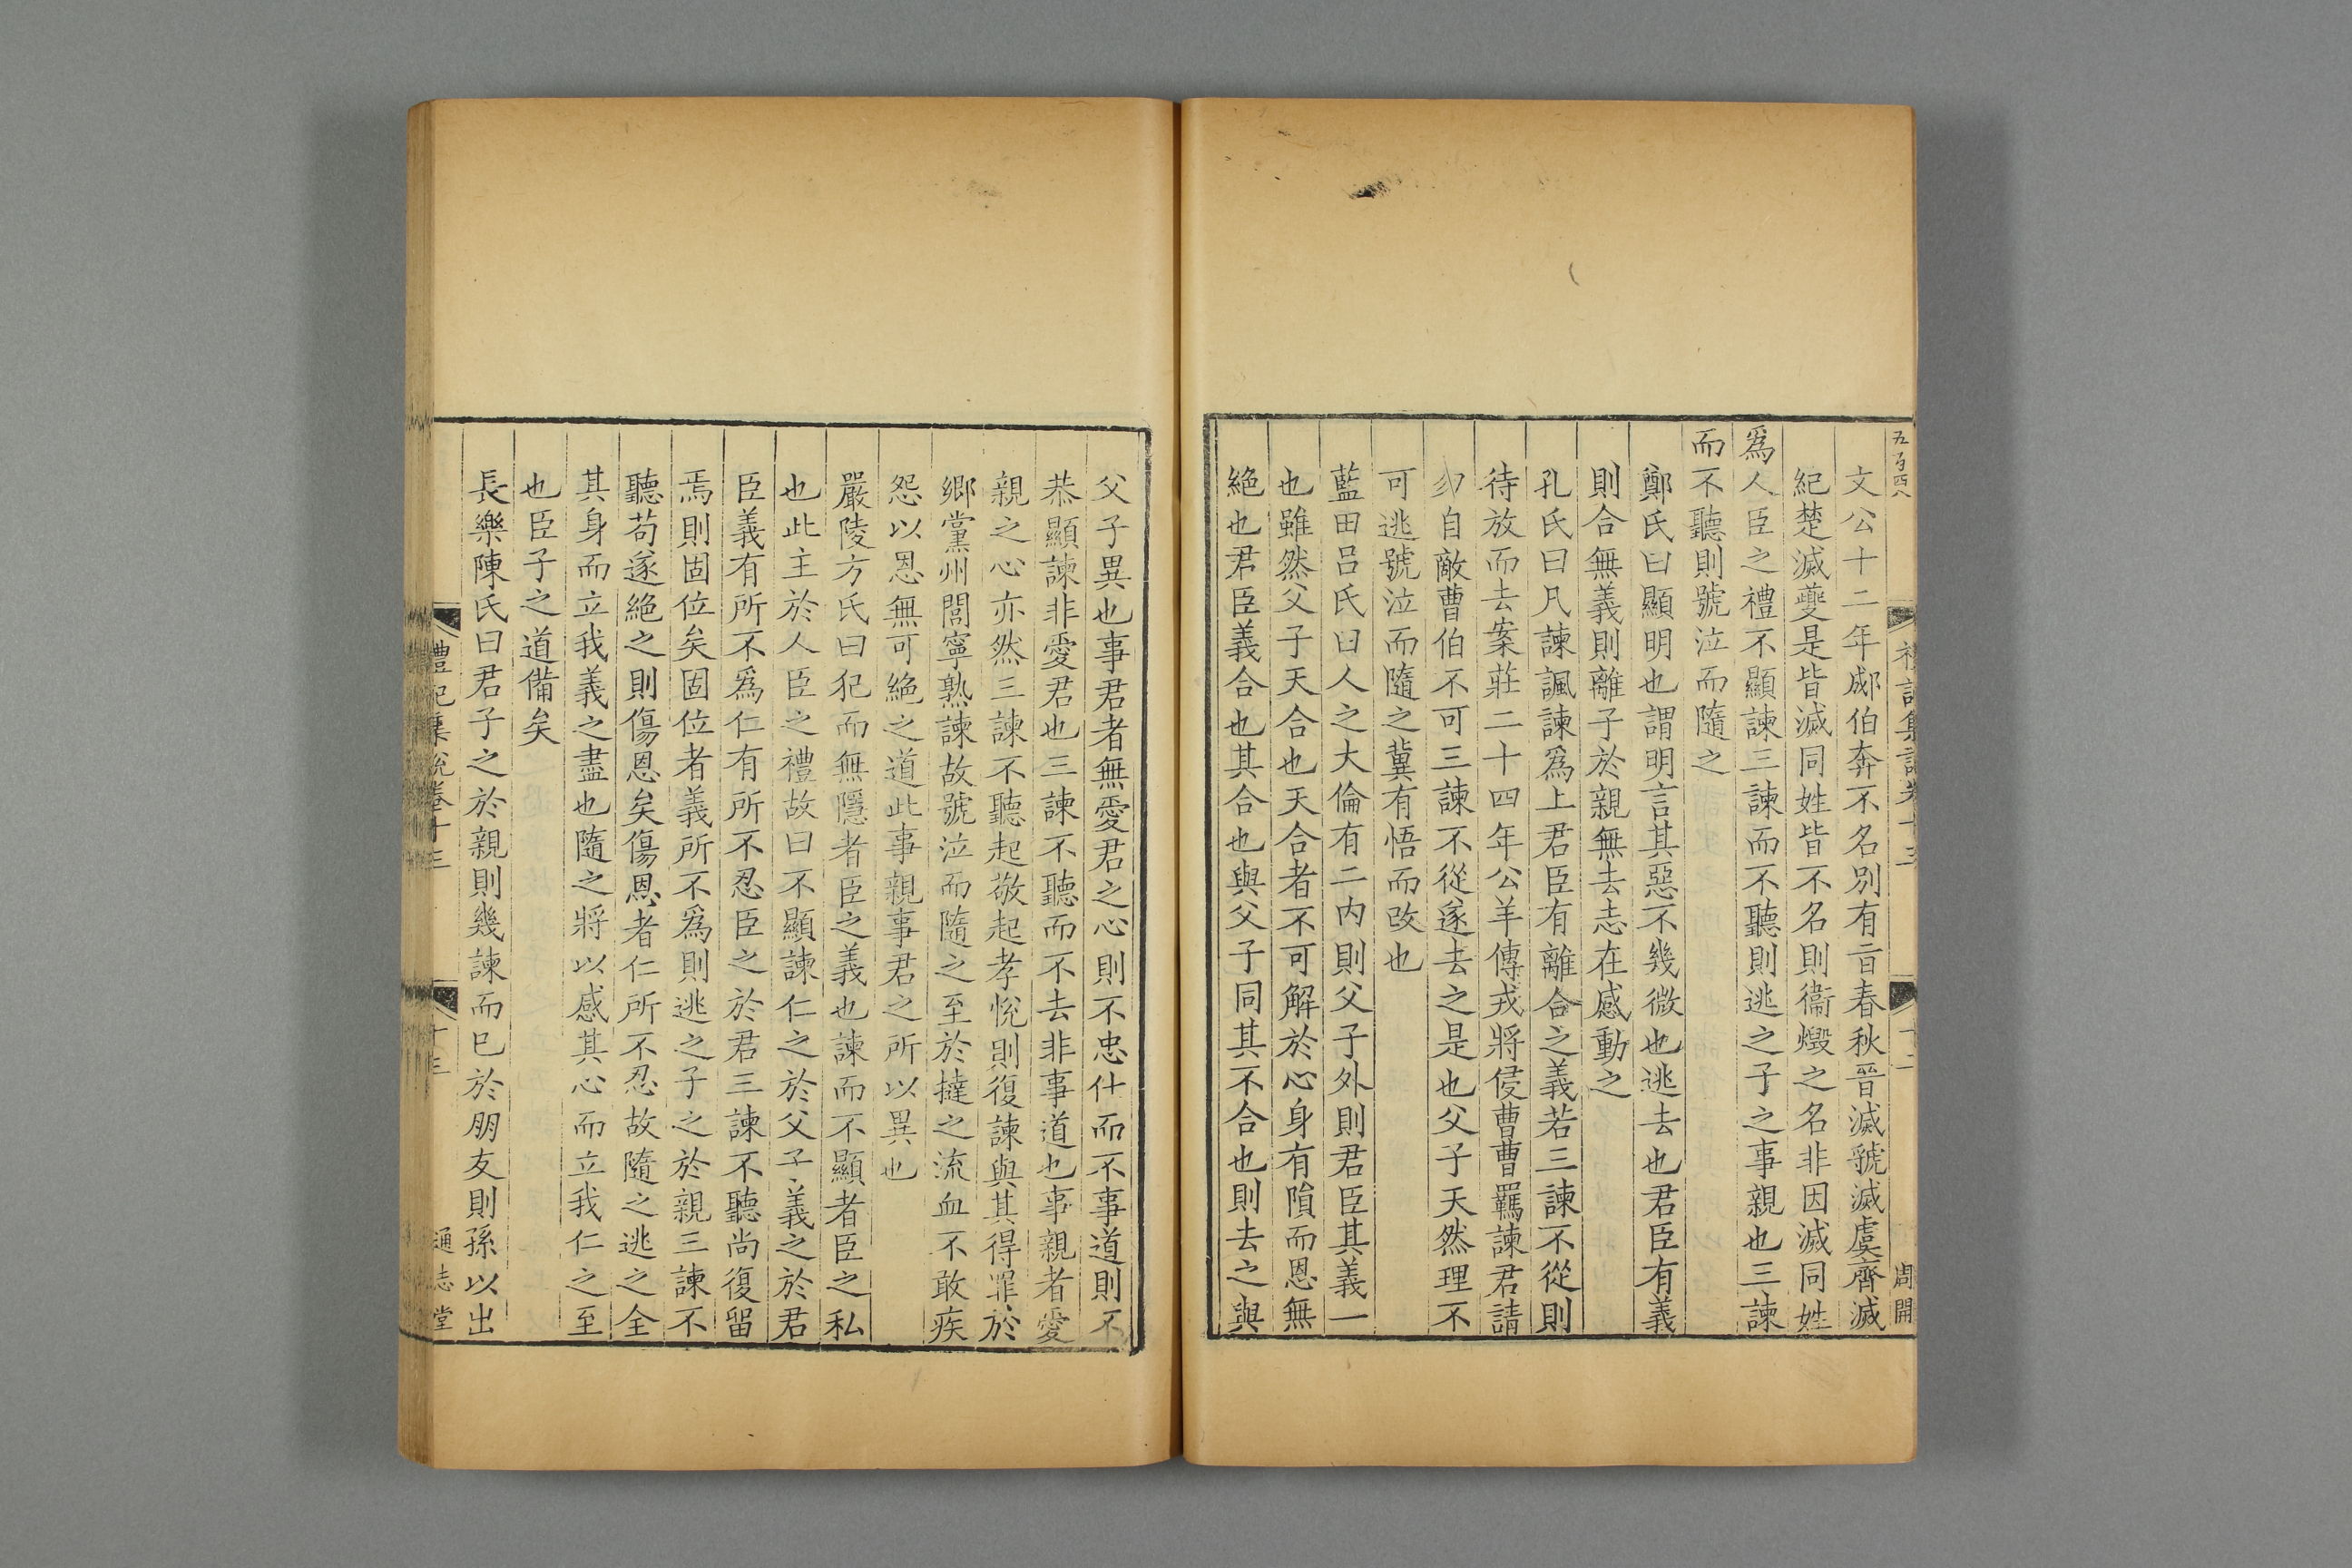 五百四八
文公十二年郕伯奔不名別有㫖春秋晉滅虢滅虞齊滅
紀楚滅夔是皆滅同姓皆不名則衞燬之名非因滅同姓
爲人臣之禮不顯諫三諫而不聽則逃之子之事親也三諫
而不聽則號泣而隨之
鄭氏曰顯明也謂明言其惡不幾微也逃去也君臣有義
則合無義則離子於親無去志在感動之
孔氏曰凡諫諷諫爲上君臣有離合之義若三諫不從則
待放而去案莊二十四年公羊傳戎將侵曹曹羈諫君請
勿自敵曹伯不可三諫不從遂去之是也父子天然理不
可逃號泣而隨之冀有悟而改也
藍田呂氏曰人之大倫有二内則父子外則君臣其義一
也雖然父子天合也天合者不可解於心身有隕而恩無
絕也君臣義合也其合也與父子同其不合也則去之與
父子異也事君者無愛君之心則不忠仕而不事道則不
恭顯諫非愛君也三諫不聽而不去非事道也事親者愛
親之心亦然三諫不聽起敬起孝悅則復諫與其得罪於
鄉黨州閭寧熟諫故號泣而隨之至於撻之流血不敢疾
怨以恩無可絕之道此事親事君之所以異也
嚴陵方氏曰犯而無隱者臣之義也諫而不顯者臣之私
也此主於人臣之禮故曰不顯諫仁之於父子義之於君
臣義有所不爲仁有所不忍臣之於君三諫不聽尚復留
焉則固位矣固位者義所不爲則逃之子之於親三諫不
聽苟遂絕之則傷恩矣傷恩者仁所不忍故隨之逃之全
其身而立我義之盡也隨之將以感其心而立我仁之至
也臣子之道備矣
長樂陳氏曰君子之於親則幾諫而已於朋友則孫以出
禮記集說卷十三
十三
通志堂